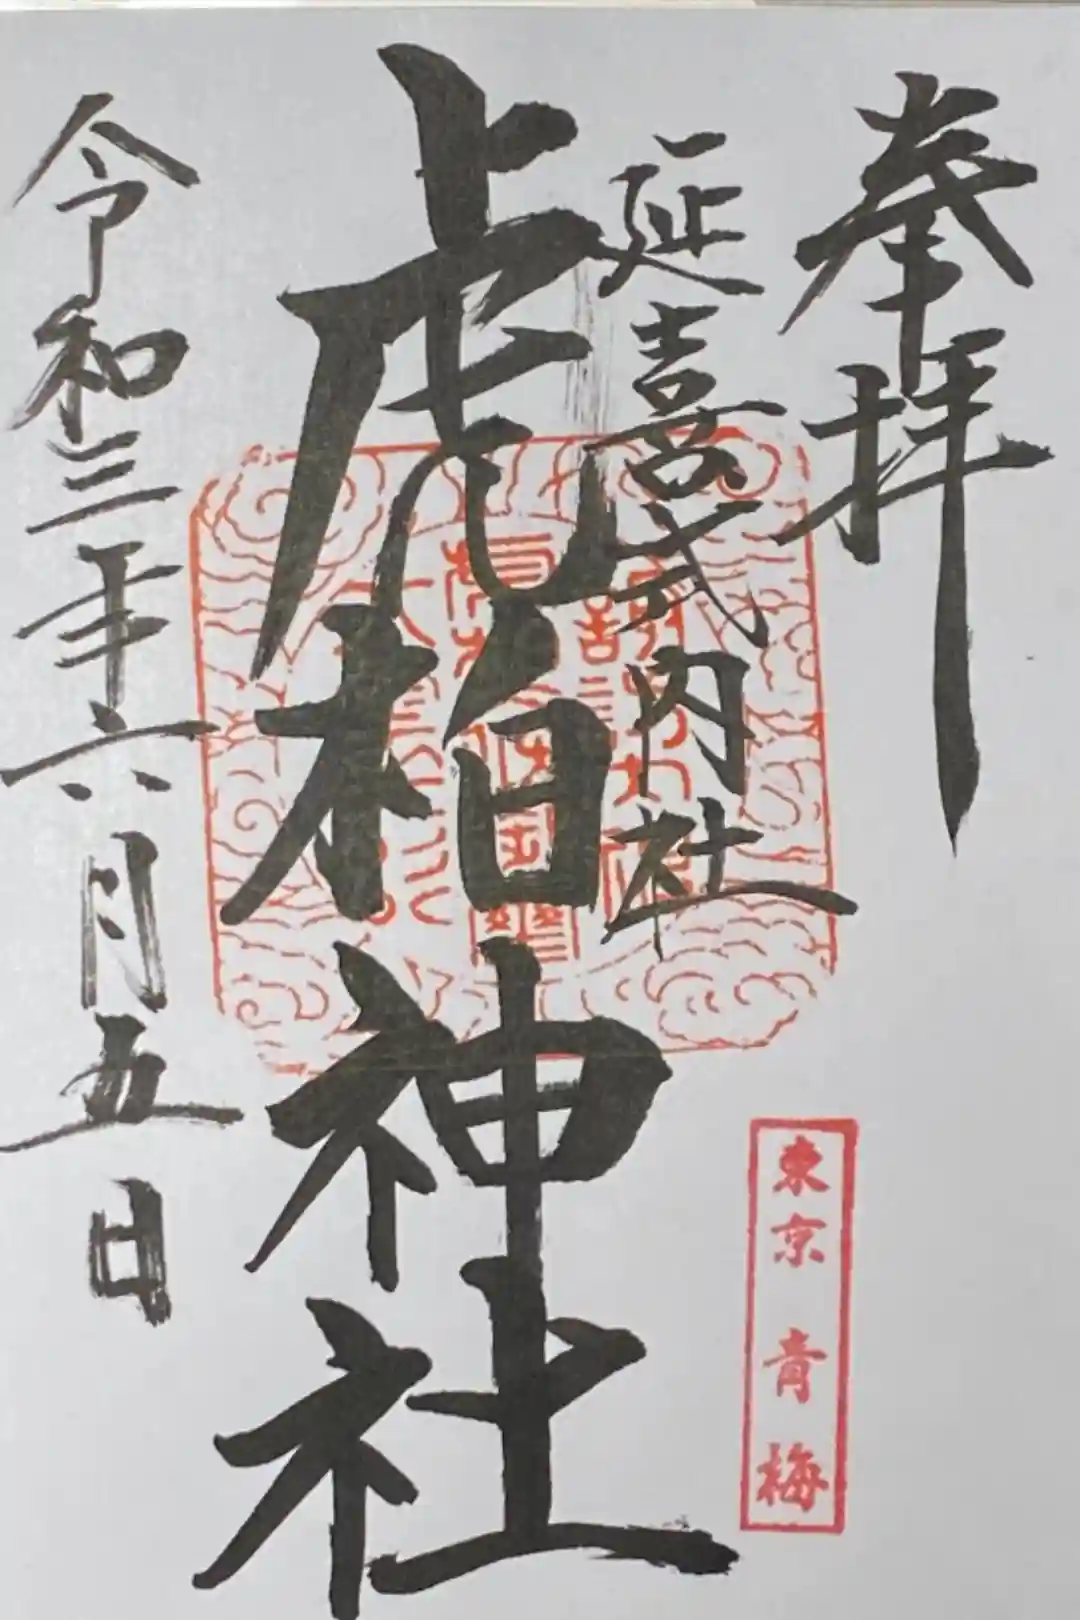 奉拝
延喜式内社
虎柏神社
令和三年六月五日
東京 青梅